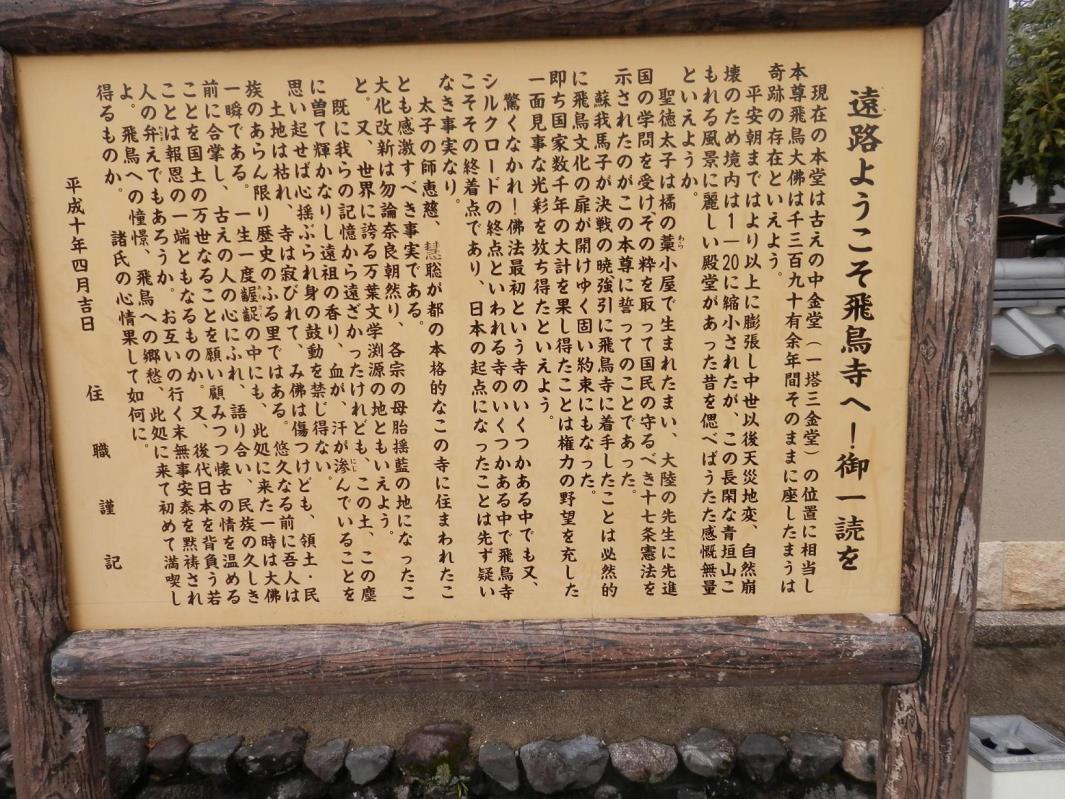 遠路ようこそ飛鳥寺へ！御一読を
現在の本堂は古えの中金堂（一塔三金堂）の位置に相当し
本尊飛鳥大佛は千三百九十有余年間そのままに座したまうは
奇跡の存在といえよう。
平安朝まではより以上に膨張し中世以後天災地変、自然崩
壊のため境内は１－20に縮小されたが、この長閑な青垣山こ
もれる風景に麗しい殿堂があった昔を偲べばうたた感慨無量
といえようか。
聖徳太子は橘の藁小屋で生まれたまい、大陸の先生に先進
国の学問を受けその粋を取って国民の守るべき十七条憲法を
示されたのがこの本尊に誓ってのことであった。
蘇我馬子が決戦の暁強引に飛鳥寺に着手したことは必然的
に飛鳥文化の扉が開けゆく固い約束にもなった。
即ち国家数千年の大計を果し得たことは権力の野望を充した
一面見事な光彩を放ち得たといえよう。
驚くなかれ！佛法最初という寺のいくつかある中でも又、
シルクロードの終点といわれる寺のいくつかある中で飛鳥寺
こそその終着点であり、日本の起点になったことは先ず疑い
なき事実なり。
太子の師恵慈、慧聡が都の本格的なこの寺に住まわれたこ
とも感激すべき事実である。
大化改新は勿論奈良朝然り、各宗の母胎揺藍の地になったこ
と。又、世界に誇る万葉文学渕源の地ともいえよう。
既に我らの記憶から遠ざかったけれども、この土、この塵
に曽て輝かなりし遠祖の香り、血が、汗が滲んでいることを
思い起せば心揺ぶられ身の鼓動を禁じ得ない。
土地は枯れ、寺は寂びれて、み佛は傷つけども、領土・民
族のあらん限り歴史のふる里ではある。悠久なる前に吾人は
一瞬である。一生一度齷齪の中にも、此処に来た一時は大佛
前に合掌し、古えの人の心にふれ、語り合い、民族の久しき
ことを国土の万世なることを願い顧みつつ懐古の情を温める
ことは報恩の一端ともなるものか。又、後代日本を背負う若
人の弁えでもあろうか。お互いの行く末無事安泰を黙祷され
よ。飛鳥への憧憬、飛鳥への郷愁、此処に来て初めて満喫し
得るものか。　諸氏の心情果して如何に。
平成十年四月吉日　住職謹記